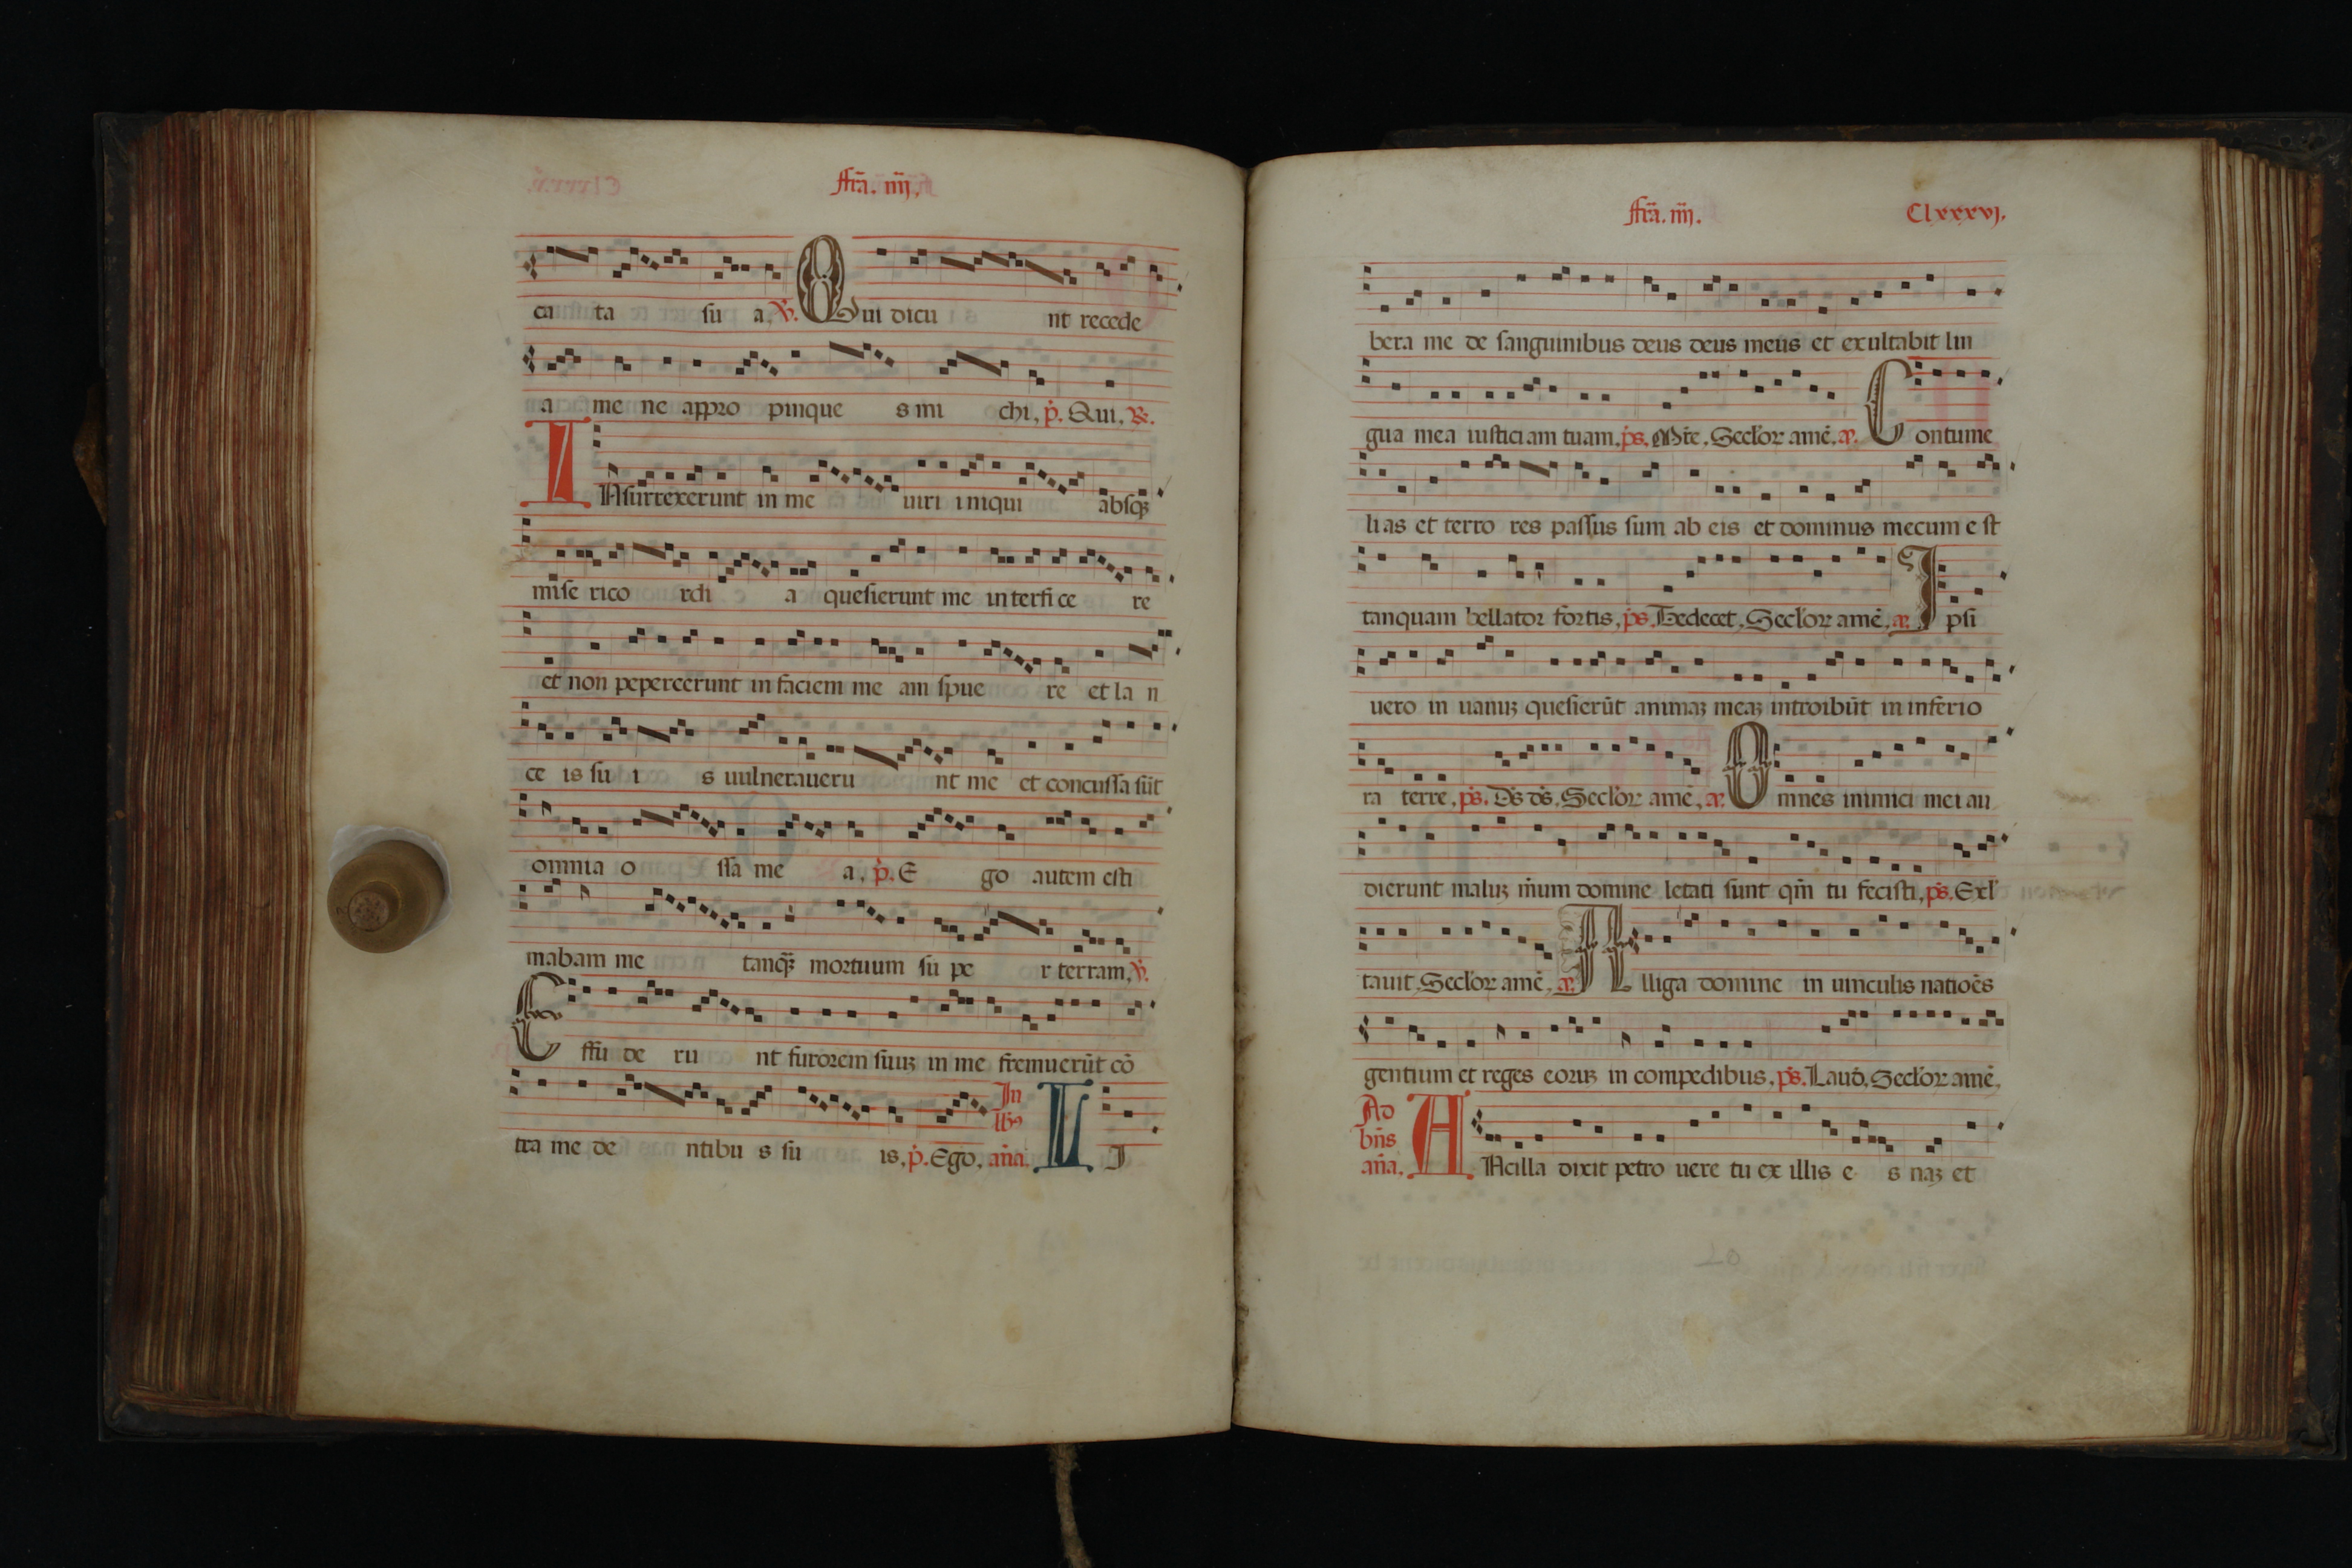 ffrã. iiij.
ca ta su a, ꝟ. Qui dicu nt recede
a me ne appro pinque s mi chi, p̃. Qui, ꝶ.
INsurrexerunt in me uiri iniqui absqȝ
mise rico rdi a quesierunt me interfice re
et non pepercerunt in faciem me am spue re et la n
ce is su i s uulneraueru nt me et concussa sũt
omnia o ssa me a, p̃. E go autem esti
mabam me tanqȝ mortuum su pe r terram, ꝟ.
Effu de ru nt furorem suuȝ in me fremuerũt cõ
tra me de ntibu s su is, p̃. Ego, In lbꝰ añã. LI
ffrã. iiij. Clxxxvj.
bera me de sanguinibus deus deus meus et exultabit lin
gua mea iusticiam tuam, p̃s. Mr̃e, Seclor̃ amẽ, Contume
lias et terro res passus sum ab eis et dominus mecum e st
tanquam bellator fortis, p̃s. Tedecet, Seclor̃ amẽ, Ipsi
uero in uanuȝ quesierũt animaȝ meaȝ introibũt in inferio
ra terre, p̃s. Ds̃ ds̃, Seclor̃ amẽ, Omnes inimici mei au
dierunt maluȝ m̃um domine letati sunt qm̃ tu fecisti, p̃s. Exl
tauit, Seclor̃ amẽ, Alliga domine in uinculis natiões
gentium et reges eoruȝ in compedibus, p̃s. Laud̃, Seclor̃ amẽ,
Ad bñs añã, ANcilla dixit petro uere tu ex illis e s naȝ et
20